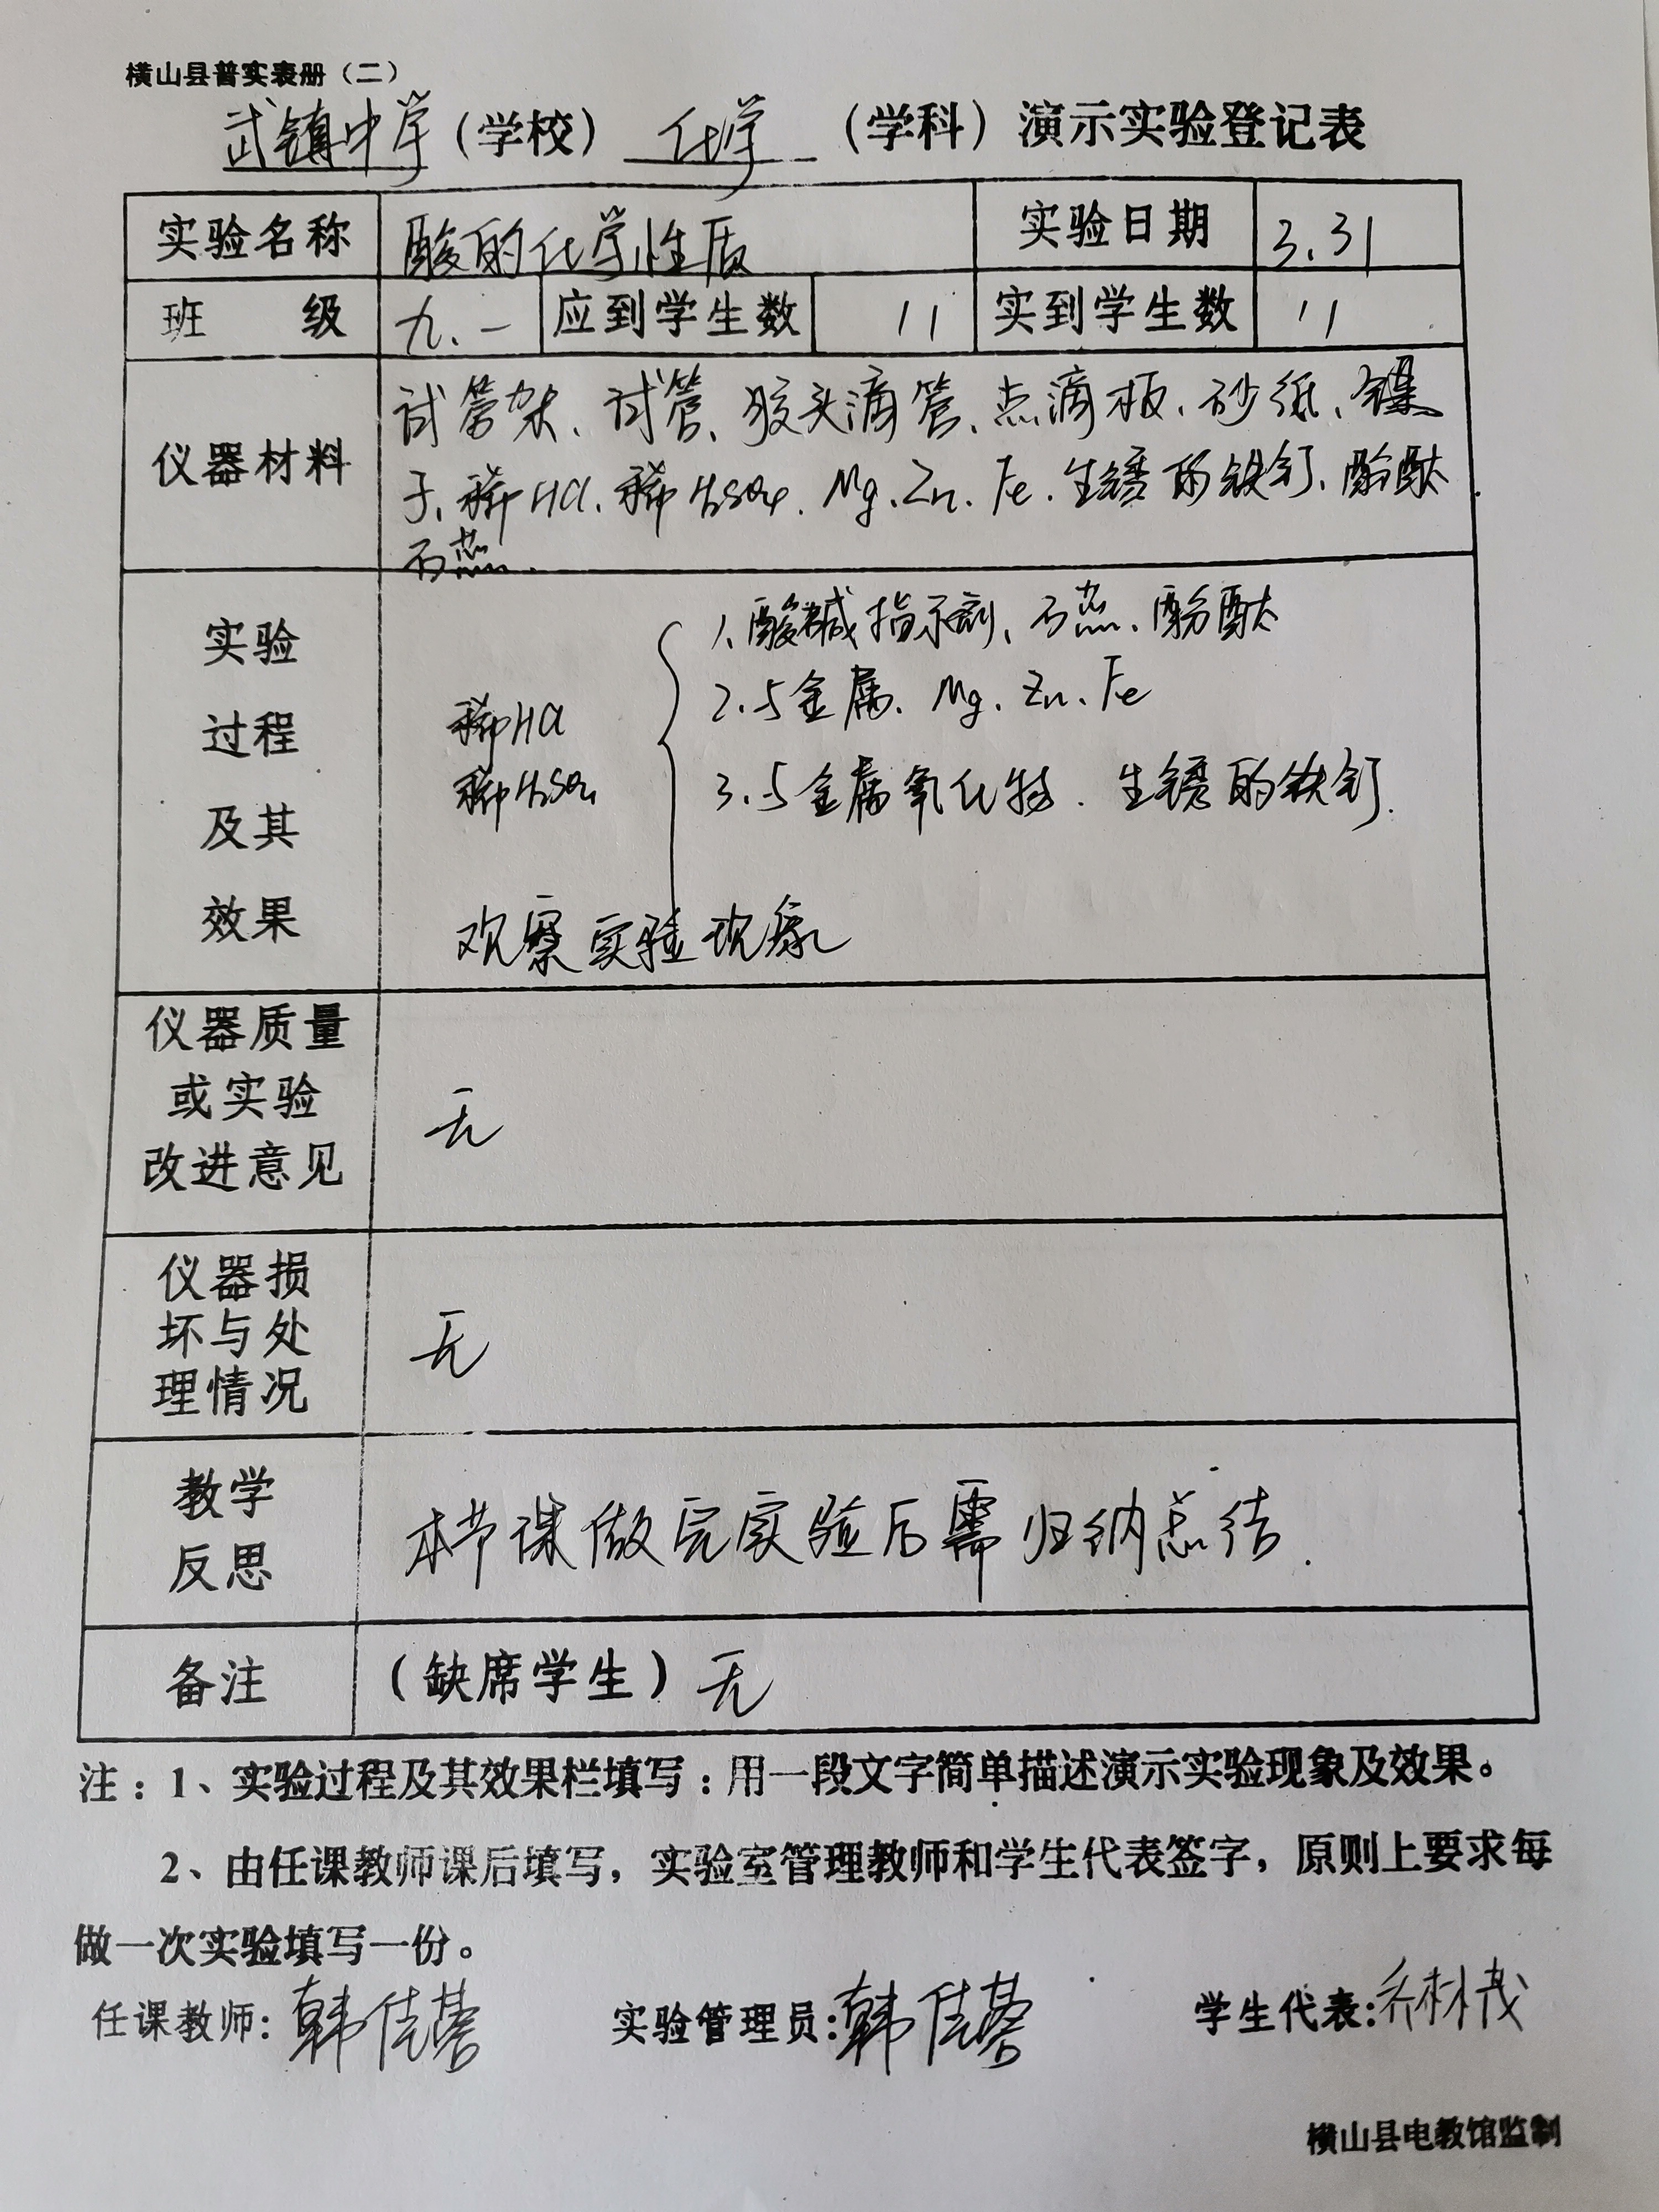 横山县普实表册（二）
武镇中学（学校） 化学 （学科）演示实验登记表
实验名称 酸的化学性质 实验日期 3.31
班 级 九.一 应到学生数 11 实到学生数 11
仪器材料
试管架、试管、胶头滴管、点滴板、砂纸、镊
子、稀HCl、稀H₂SO₄、Mg、Zn、Fe、生锈的铁钉、酚酞
石蕊.
实验
过程
及其
效果
稀HCl
稀H₂SO₄
1、酸碱指示剂、石蕊、酚酞
2.与金属、Mg、Zn、Fe
3.与金属氧化物．生锈的铁钉.
观察实验现象
仪器质量
或实验
改进意见
无
仪器损
坏与处
理情况
无
教学
反思
本节课做完实验后需归纳总结.
备注 （缺席学生）无
注：1、实验过程及其效果栏填写：用一段文字简单描述演示实验现象及效果。
2、由任课教师课后填写，实验室管理教师和学生代表签字，原则上要求每
做一次实验填写一份。
任课教师：韩佳蓉 实验管理员：韩佳蓉 学生代表：乔林茂
横山县电教馆监制